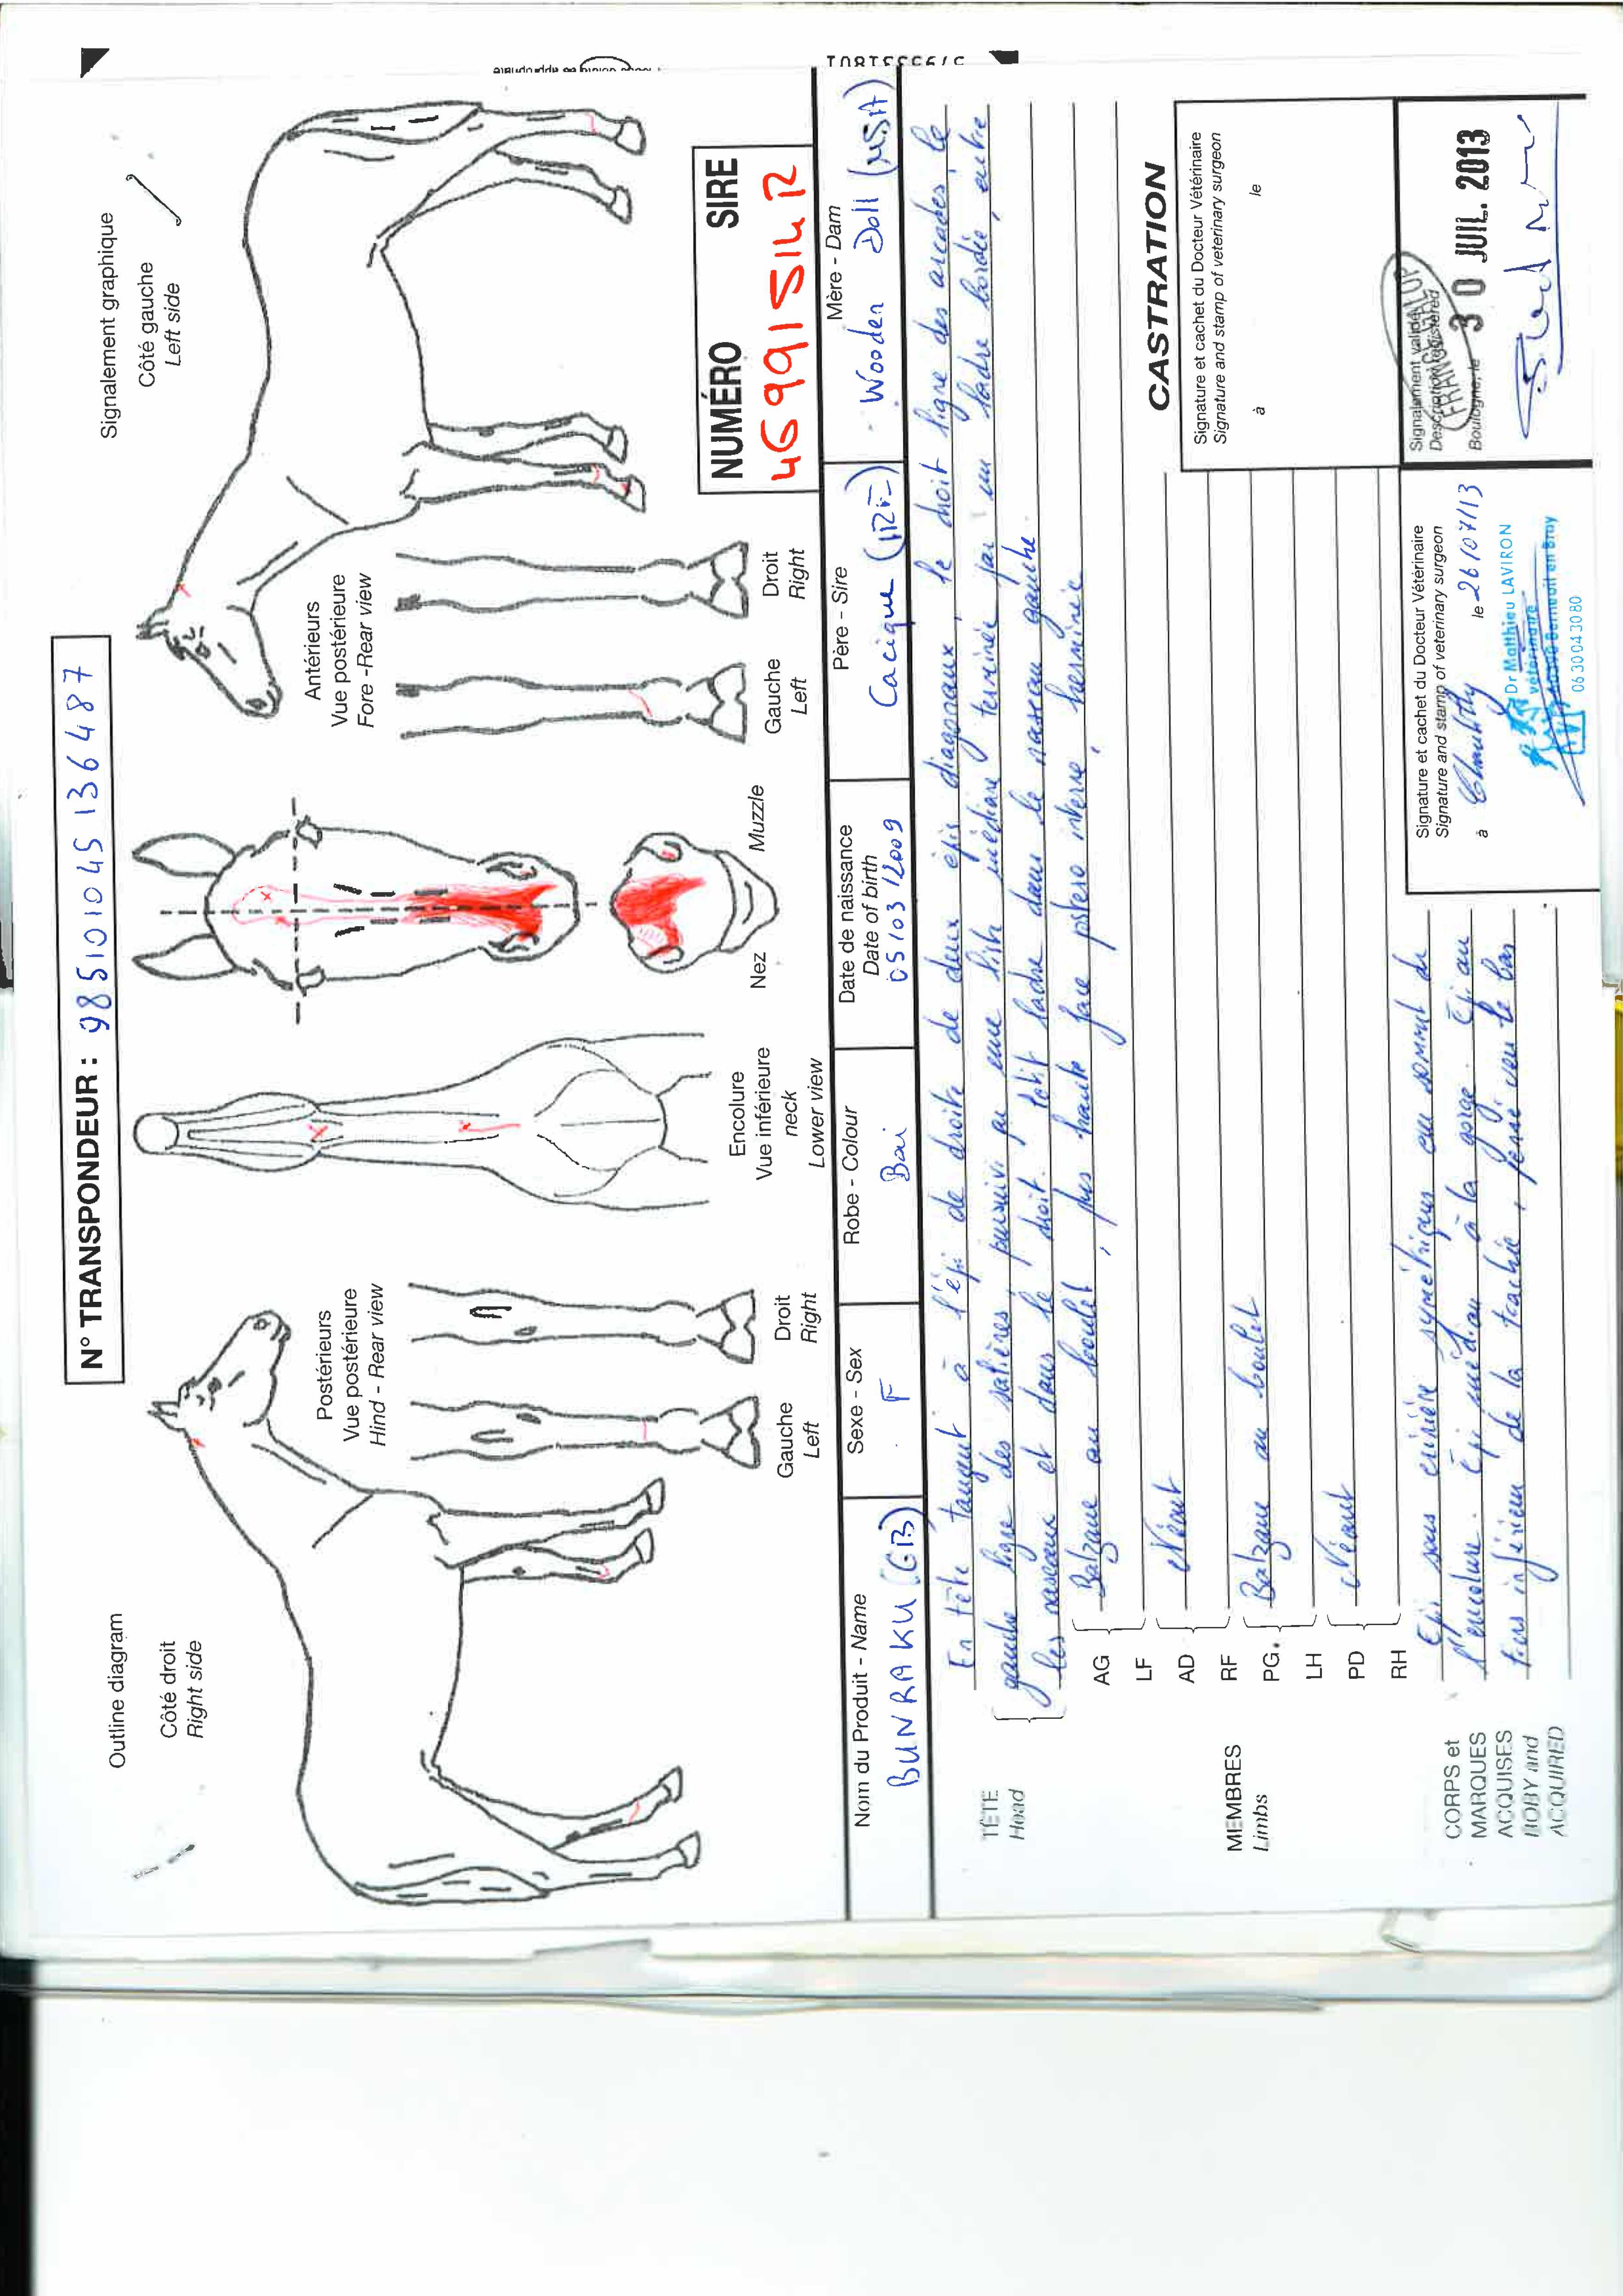 N° TRANSPONDEUR : 985101045136487
Outline diagram
Signalement graphique
Côté droit
Right side
Côté gauche
Left side
Postérieurs
Vue postérieure
Hind - Rear view
Antérieurs
Vue postérieure
Fore -Rear view
Gauche
Left
Droit
Right
Encolure
Vue inférieure
neck
Lower view
Nez
Muzzle
Gauche
Left
Droit
Right
NUMÉRO SIRE
46991514R
Nom du Produit - Name
BUNRAKU (GB)
Sexe - Sex
F
Robe - Colour
Bai
Date de naissance
Date of birth
05/03/2009
Père - Sire
Cacique (IRE)
Mère - Dam
Wooden Doll (USA)
TÊTE
Head
En tête tangent à l'épi de droite de deux épis diagonaux, le droit ligne des arcades, le
gauche ligne des salières, poursuivi par une liste médiane terminée par un ladre bordé, entre
les naseaux et dans le droit. Petit ladre dans le naseau gauche.
MEMBRES
Limbs
AG
LF
Balzane au boulet, plus haute face postero interne, herminée
AD
RF
Néant
PG.
LH
Balzane au boulet
PD
RH
Néant
CORPS et
MARQUES
ACQUISES
BOBY and
ACQUIRED
Epis sous crinière symétriques au sommet de
l'encolure. Epi médian à la gorge. Epi au
tiers inférieur de la trachée, penné vers le bas
CASTRATION
Signature et cachet du Docteur Vétérinaire
Signature and stamp of veterinary surgeon
à le
Signature et cachet du Docteur Vétérinaire
Signature and stamp of veterinary surgeon
à Chantilly le 26/07/13
Dr Matthieu LAVIRON
vétérinaire
06 30 04 30 80
Signalement validé
Description registered
FRANCE GALOP
Boulogne, le 30 JUIL. 2013